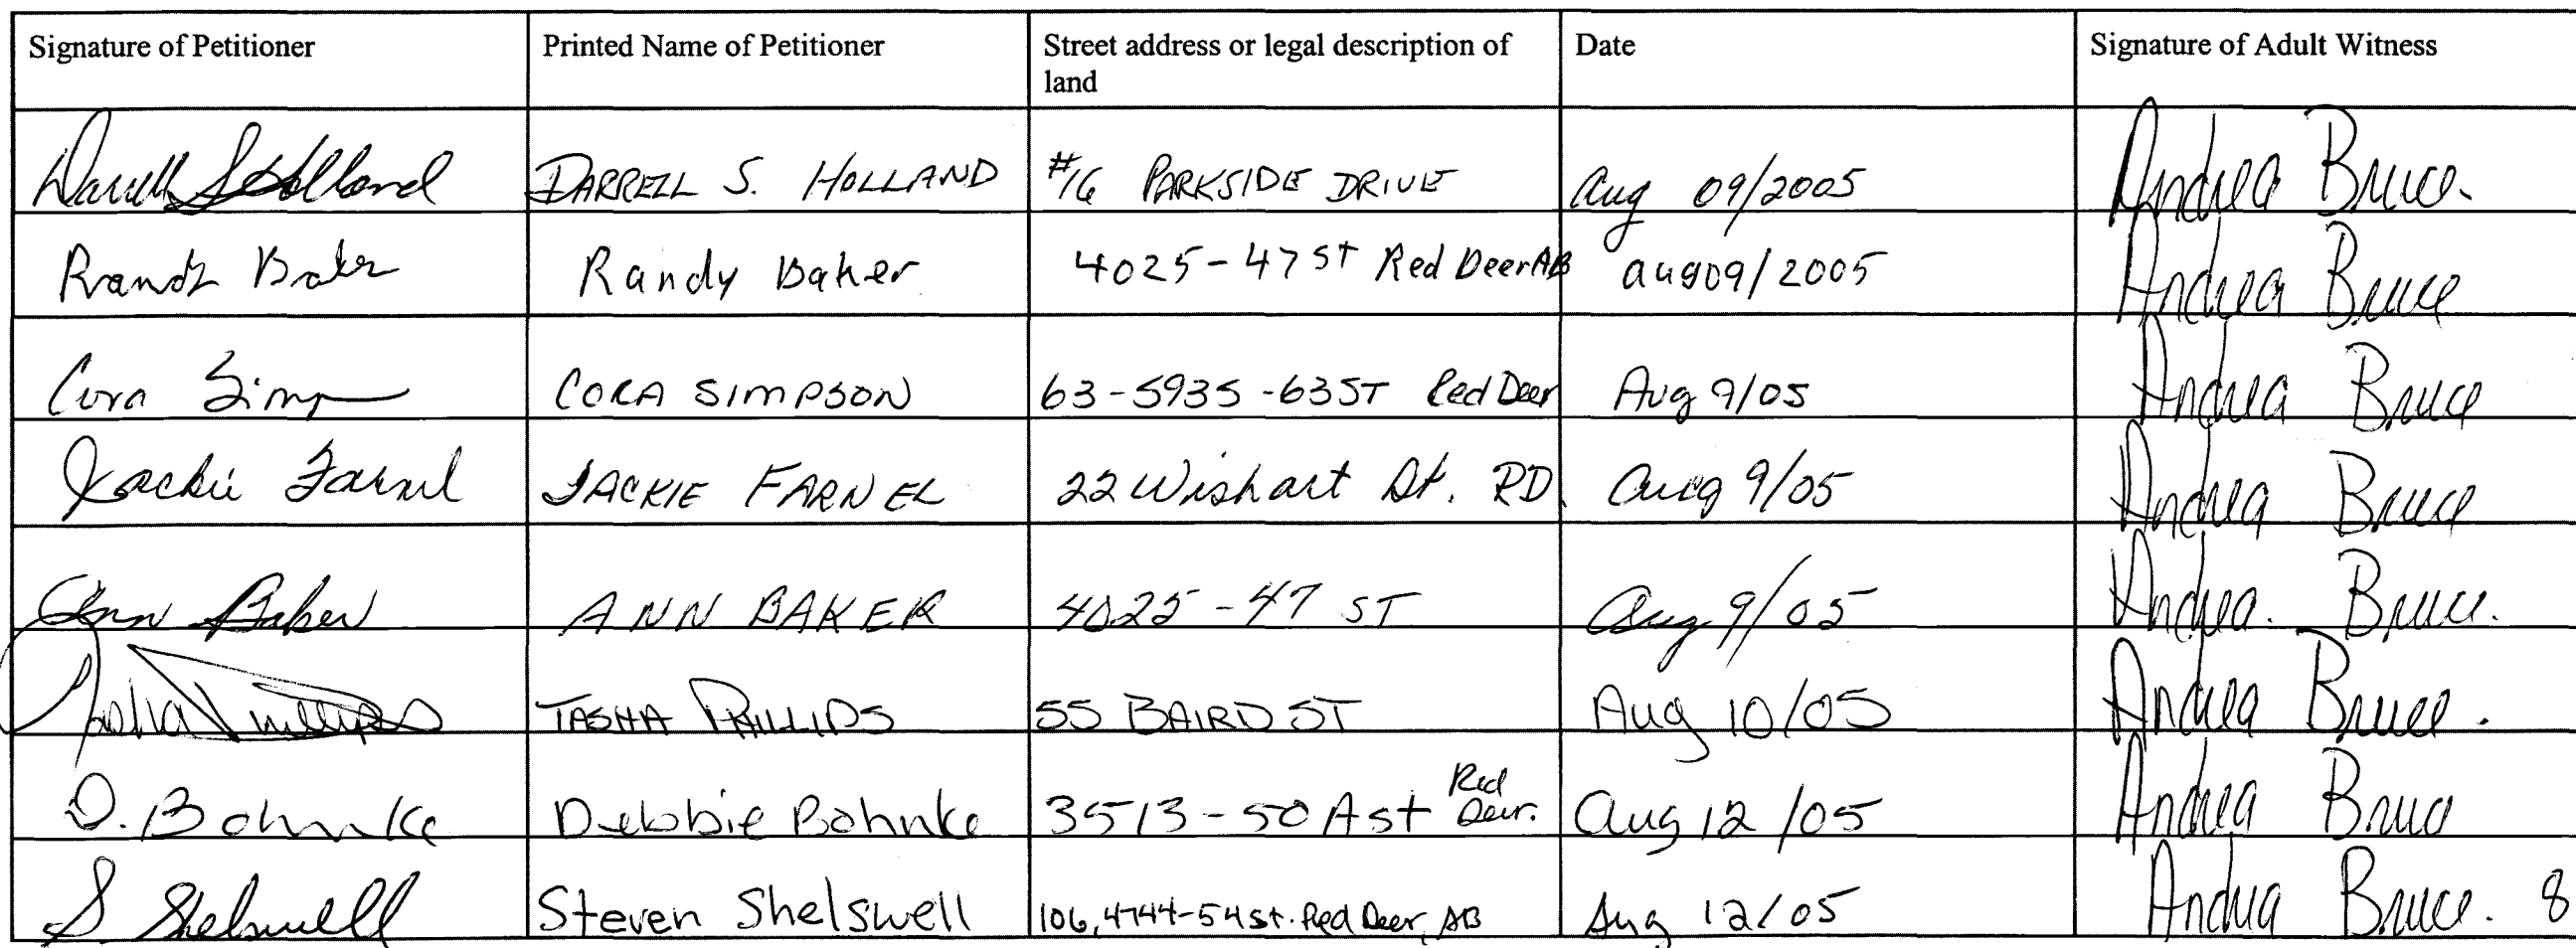 Signature of Petitioner Printed Name of Petitioner Street address or legal description of Date Signature of Adult Witness
land
Darrell S Holland DARRELL S. HOLLAND #16 PARKSIDE DRIVE Aug 09/2005 Andrea Bruce.
Randy Baker Randy Baker 4025-47 St Red Deer AB aug 09/2005 Andrea Bruce
Cora Simp CORA SIMPSON 63-5935-63 ST Red Deer Aug 9/05 Andrea Bruce
Jackie Farnel JACKIE FARNEL 22 Wishart St. RD. Aug 9/05 Andrea Bruce
Ann Baker ANN BAKER 4025-47 ST Aug 9/05 Andrea. Bruce.
Tasha Phillips TASHA PHILLIPS 55 BAIRD ST Aug 10/05 Andrea Bruce.
D. Bohnke Debbie Bohnke 3513-50 A st Red Deer. Aug 12/05 Andrea Bruce
S Shelswell Steven Shelswell 106, 4744-54 st. Red Deer, AB Aug 12/05 Andrea Bruce. 8